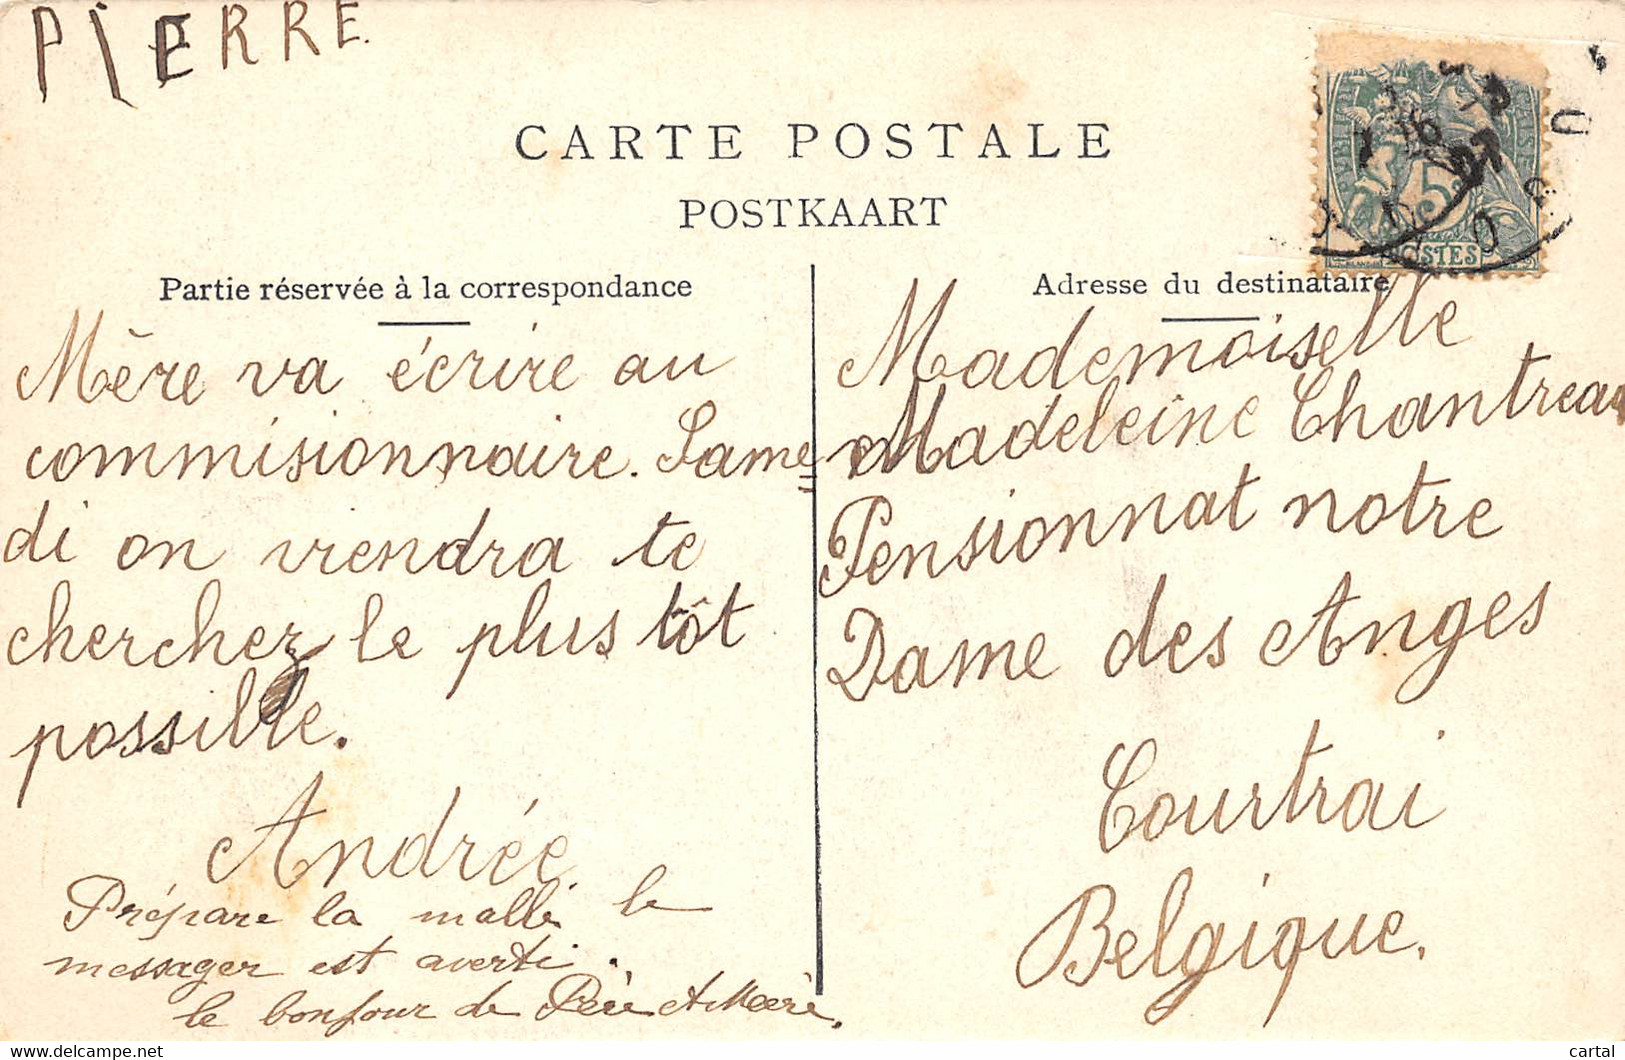 PIERRE.
CARTE POSTALE
POSTKAART
Partie réservée à la correspondance
Mère va écrire au
commisionnaire. Same=
di on viendra te
cherchez le plus tôt
possible.
Andrée
Prépare la malle le
messager est averti.
le bonjour de Père et Mère.
Adresse du destinataire
Mademoiselle
Madeleine Chantreau
Pensionnat notre
Dame des Anges
Courtrai
Belgique.
5
POSTES
www.delcampe.net
cartal